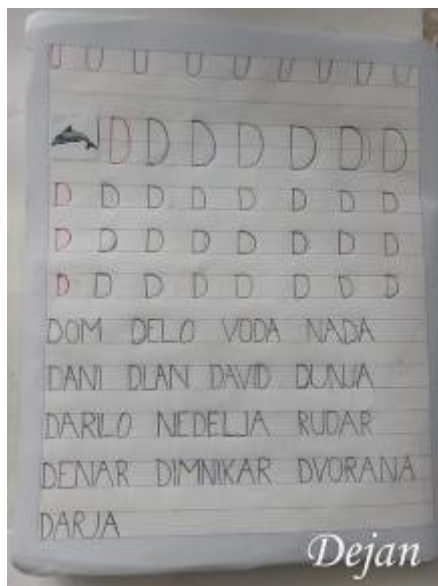 U U U U U U U U U
D D D D D D D
D D D D D D D D
D D D D D D D D
D D D D D D D D
DOM DELO VODA NADA
DANI DLAN DAVID DUNJA
DARILO NEDELJA RUDAR
DENAR DIMNIKAR DVORANA
DARJA
Dejan